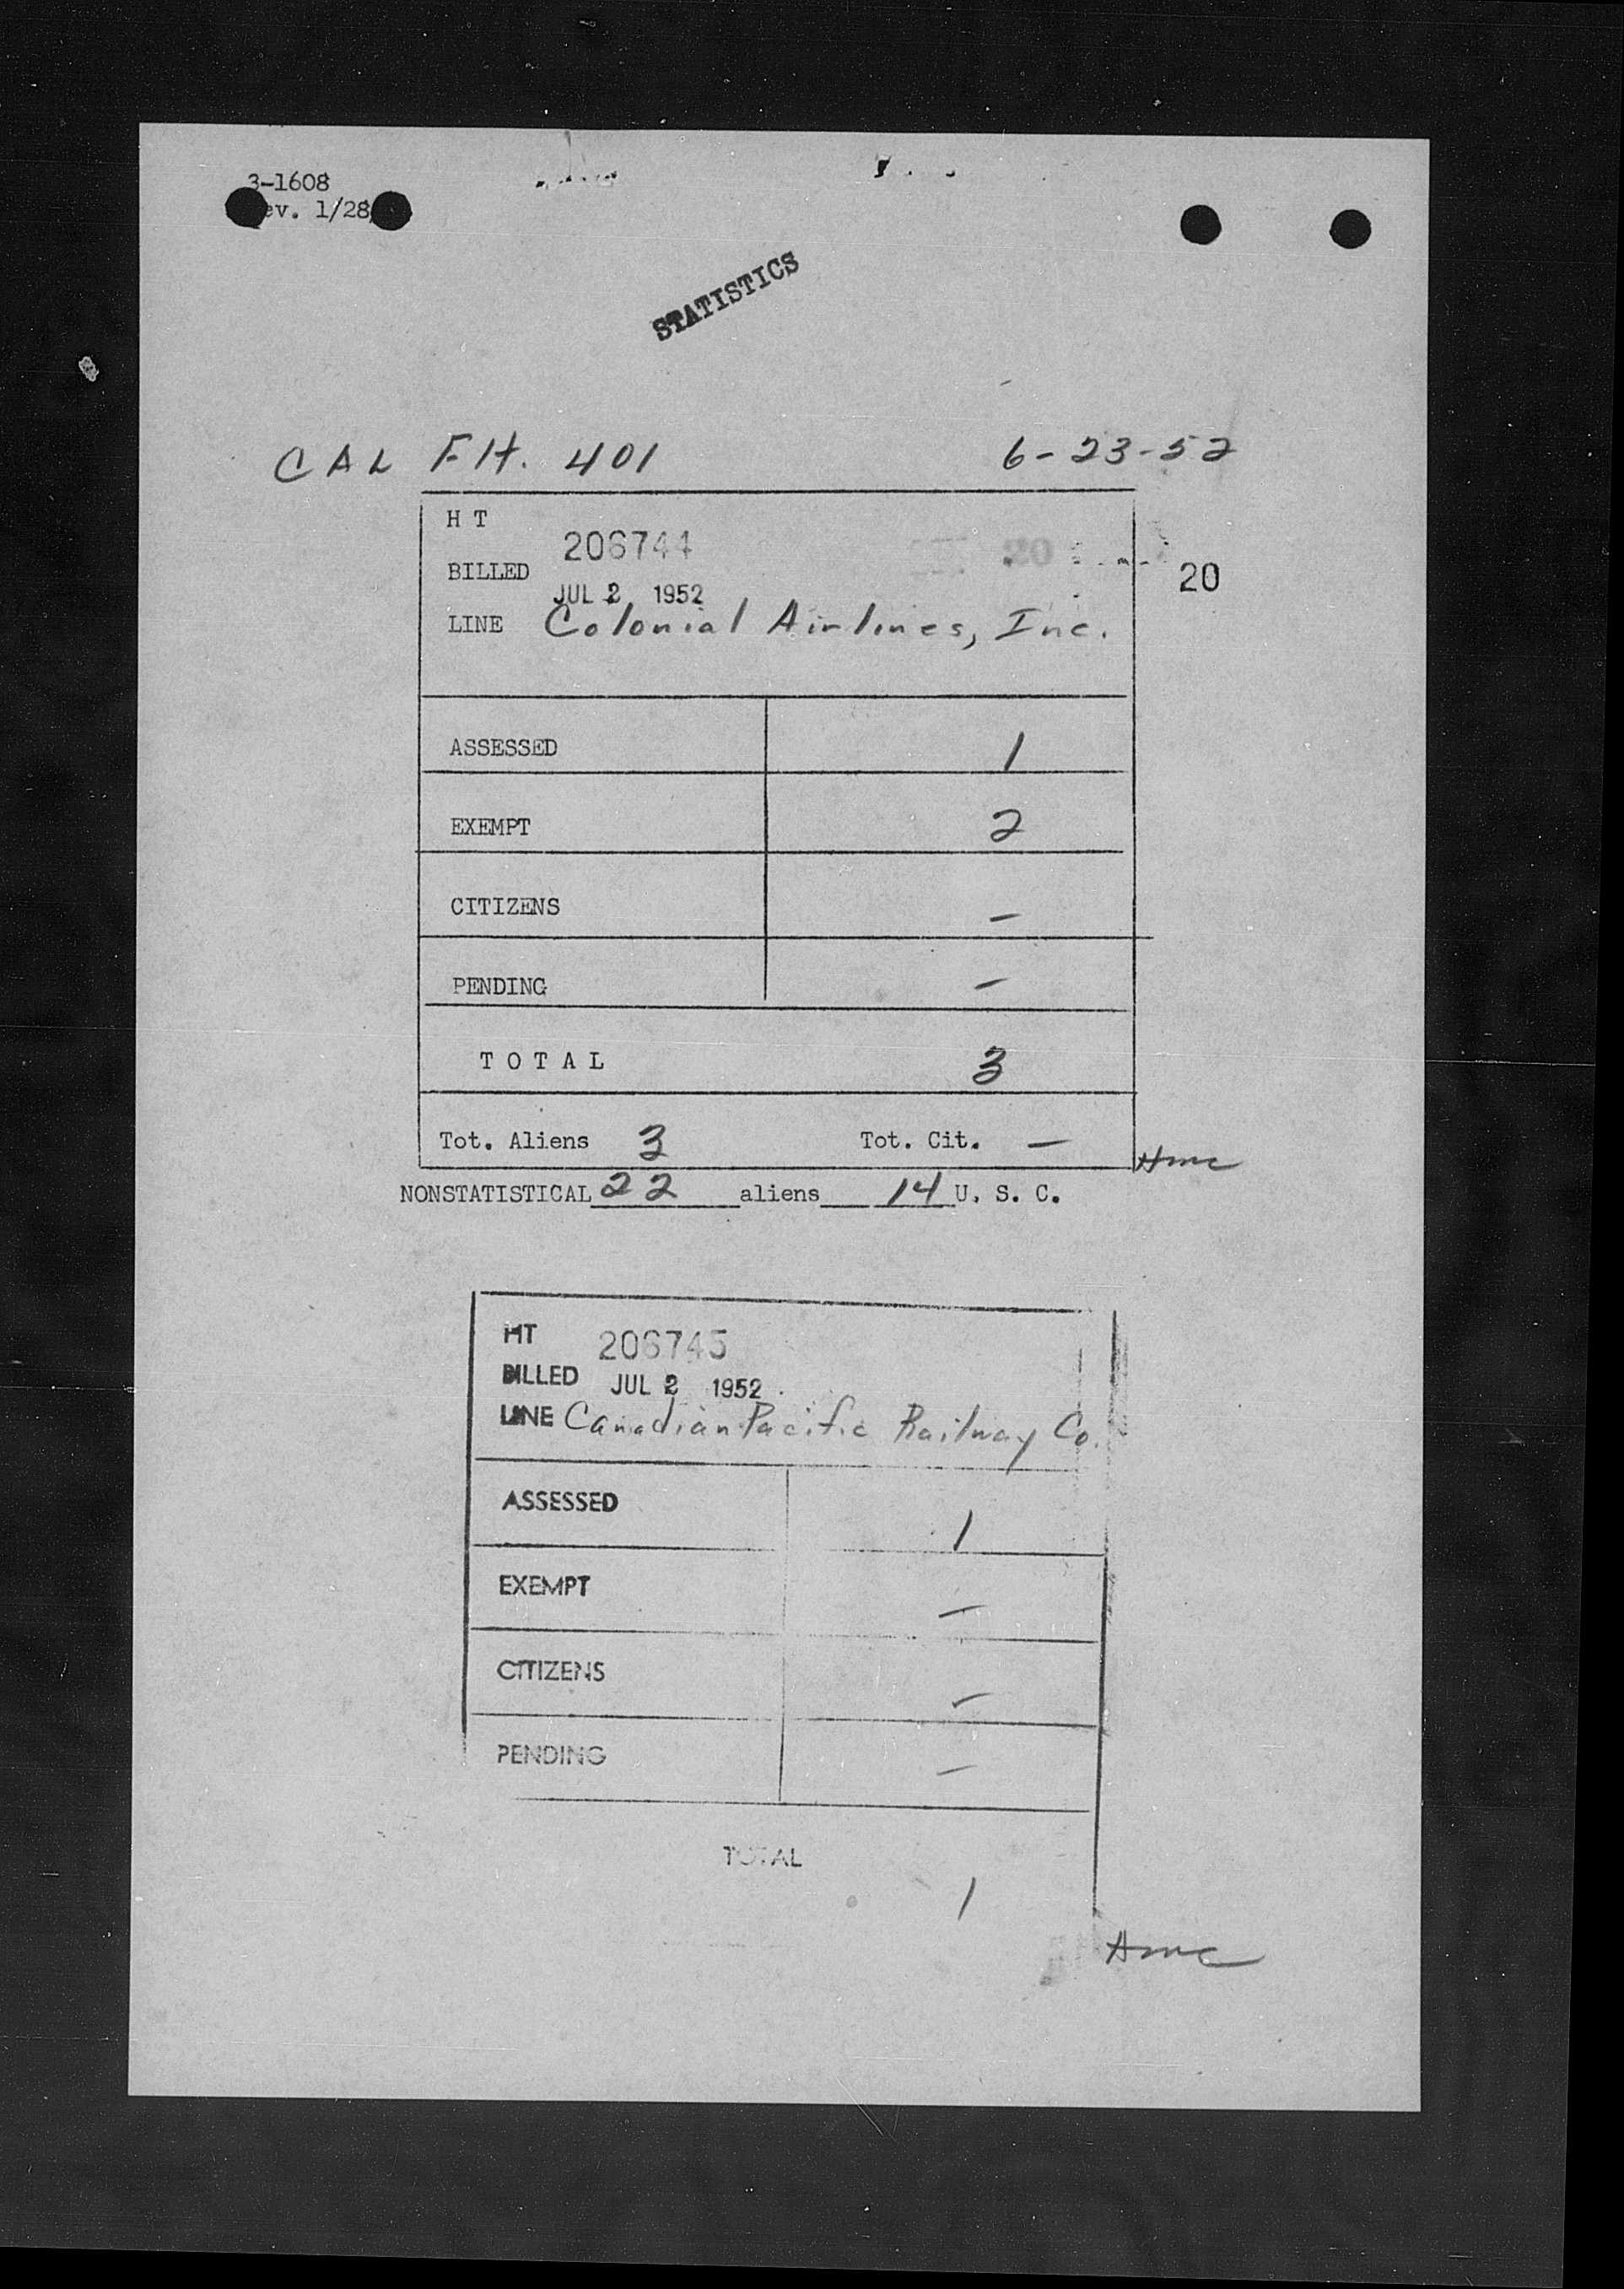 3-1608
ev. 1/28
STATISTICS
CAL Flt. 401 6-23-52
H T 206744
BILLED JUL 2 1952 20
LINE Colonial Airlines, Inc.
ASSESSED 1
EXEMPT 2
CITIZENS -
PENDING -
T O T A L 3
Tot. Aliens 3 Tot. Cit. -
NONSTATISTICAL 22 aliens 14 U. S. C.
HT 206745
BILLED JUL 2 1952
LINE Canadian Pacific Railway Co.
ASSESSED 1
EXEMPT -
CITIZENS -
PENDING -
TOTAL
1